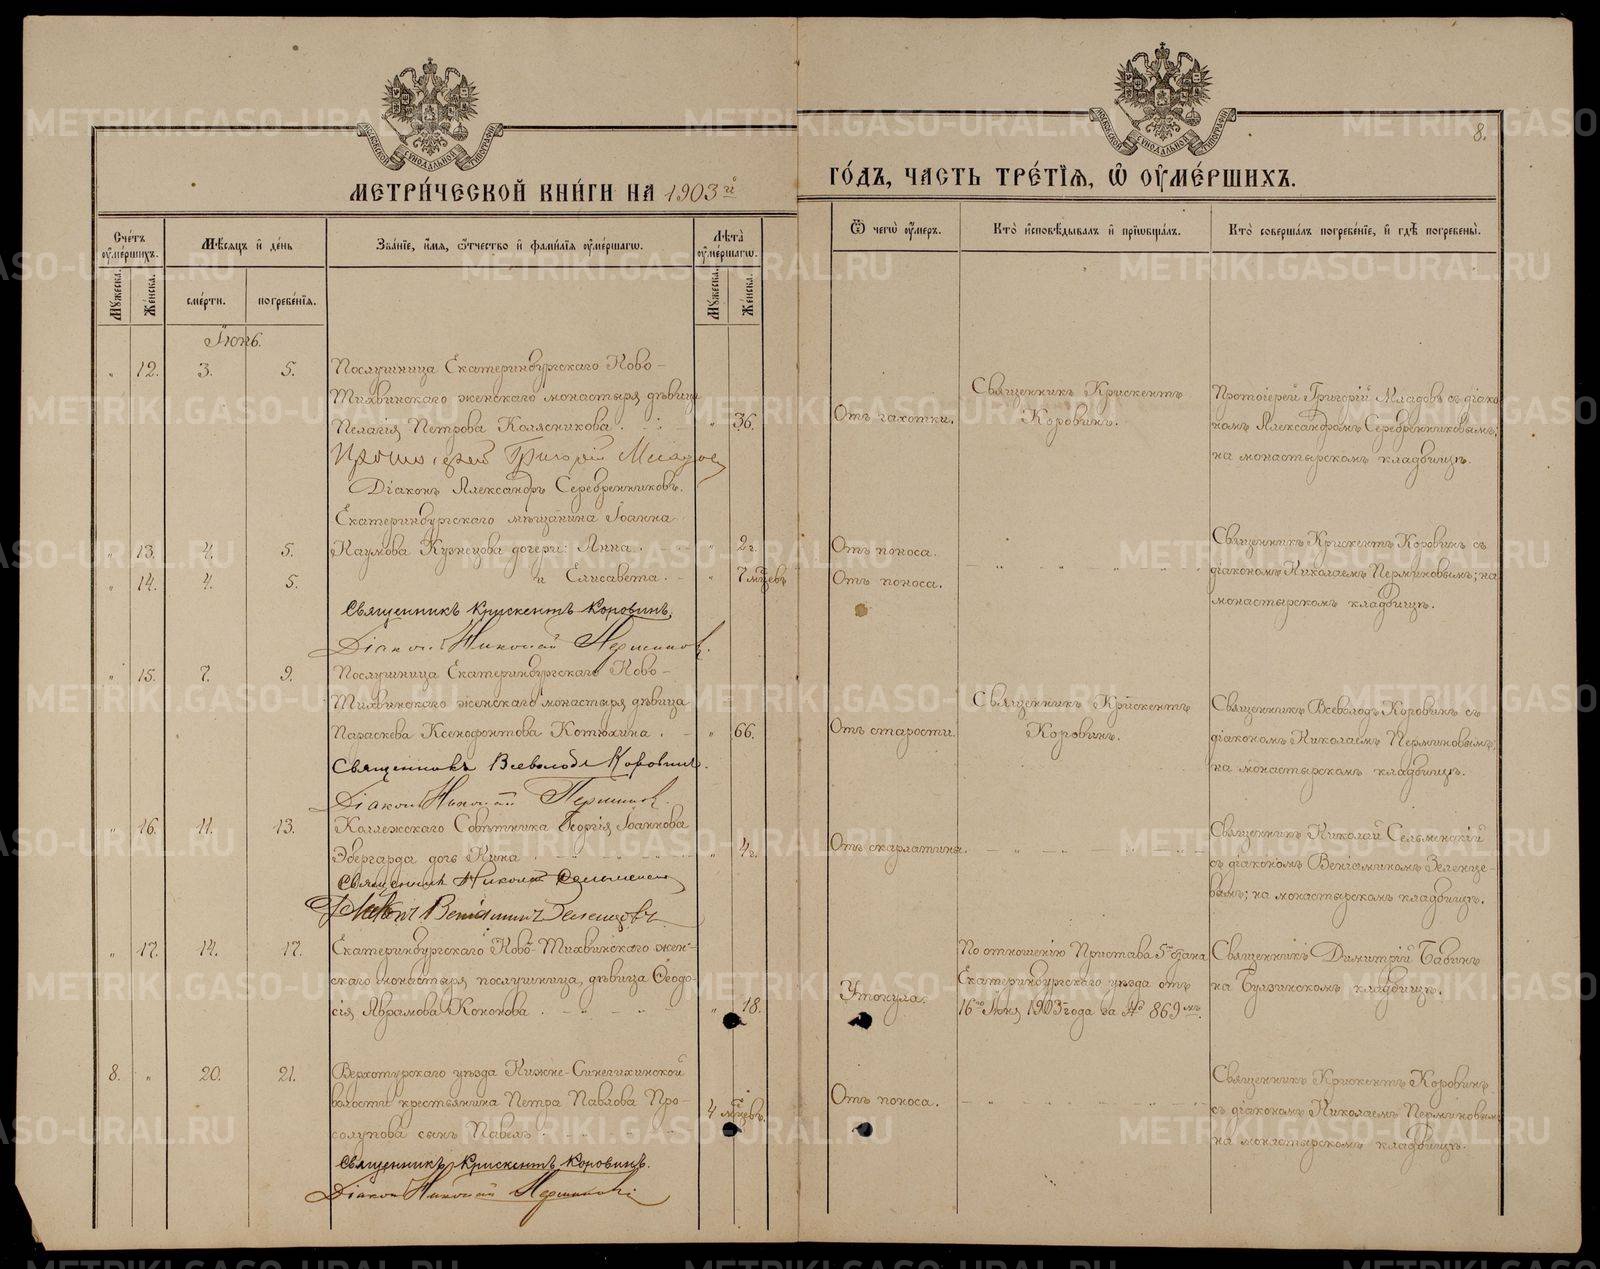 МЕТРИ́ЧЕСКОЙ КНИ́ГИ НА 1903й
ГО́ДЪ, ЧАСТЬ ТРЕ́ТІѦ, Ѿ ОУМЕ́РШИХЪ.
8.
Сче́тъ оуме́ршихъ.
Мѣсяцъ и де́нь
Зва́ніе, и́мя, о́тчество и фами́лія оуме́ршагѡ.
Лѣта̀ оуме́ршагѡ.
Ѿ чегѡ̀ оу́меръ.
Кто̀ исповѣ́дывалъ и пріѡбща́лъ.
Кто̀ соверша́лъ погребе́ніе, и гдѣ̀ погребены̀.
Мужеска.
Же́нска.
сме́рти.
погребе́нія.
Мужеска.
Же́нска.
Іюнь.
„ 12. 3. 5.
Послушница Екатеринбургскаго Ново-
Тихвинскаго женскаго монастыря, дѣвица
Пелагія Петрова Колясникова. „ 36.
Протоіерей Григорій Младовъ
Діаконъ Александръ Серебренниковъ.
Отъ чахотки.
Священникъ Крискентъ
Коровинъ.
Протоіерей Григорій Младовъ съ діако
номъ Александромъ Серебренниковымъ;
на монастырскомъ кладбищѣ.
Екатеринбургскаго мѣщанина Іоанна
„ 13. 4. 5. Наумова Кузнецова дочери: Анна. „ 2 г.
„ 14. 4. 5. и Елисавета. „ 7 мѣсцевъ
Священникъ Крискентъ Коровинъ.
Діаконъ Николай Перминовъ.
Отъ поноса.
Отъ поноса.
Священникъ Крискентъ Коровинъ съ
діакономъ Николаемъ Перминовымъ; на
монастырскомъ кладбищѣ.
„ 15. 7. 9.
Послушница Екатеринбургскаго Ново-
Тихвинскаго женскаго монастыря, дѣвица
Параскева Ксенофонтова Котюхина. „ 66.
Священникъ Всеволодъ Коровинъ.
Діаконъ Николай Перминовъ.
Отъ старости.
Священникъ Крискентъ
Коровинъ.
Священникъ Всеволодъ Коровинъ съ
діакономъ Николаемъ Перминовымъ;
на монастырскомъ кладбищѣ.
„ 16. 11. 13.
Коллежскаго Совѣтника Георгія Іоаннова
Эбергарда дочь Нина. „ 4 г.
Священникъ Николай Сельменскій
Діаконъ Веніаминъ Зеленцовъ
Отъ скарлатины.
Священникъ Николай Сельменскій
съ діакономъ Веніаминомъ Зеленце-
вымъ; на монастырскомъ кладбищѣ.
„ 17. 14. 17.
Екатеринбургскаго Ново-Тихвинскаго жен-
скаго монастыря послушница, дѣвица Ѳеодо-
сія Абрамова Кононова. „ 18.
Утонула.
По отношенію Пристава 5го стана
Екатеринбургскаго уѣзда отъ
16го Іюня 1903 года за № 869мъ.
Священникъ Димитрій Бабинъ
на Булзинскомъ кладбищѣ.
8. „ 20. 21.
Верхотурскаго уѣзда Нижне-Синечихинской
волости крестьянина Петра Павлова Про-
солупова сынъ Павелъ. 4 мѣсцевъ.
Священникъ Крискентъ Коровинъ.
Діаконъ Николай Перминовъ
Отъ поноса.
Священникъ Крискентъ Коровинъ
съ діакономъ Николаемъ Перминовымъ
на монастырскомъ кладбищѣ.
METRIKI.GASO-URAL.RU